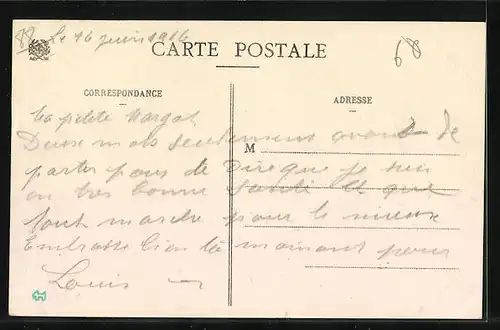 88
Le 16 juin 1916
68
CARTE POSTALE
CORRESPONDANCE
ADRESSE
M
Ma petite Margot
Deux mots seulement avant de
partir pour te dire que je suis
en très bonne santé et que
tout marche pour le mieux
Embrasse bien ta maman pour
Louis